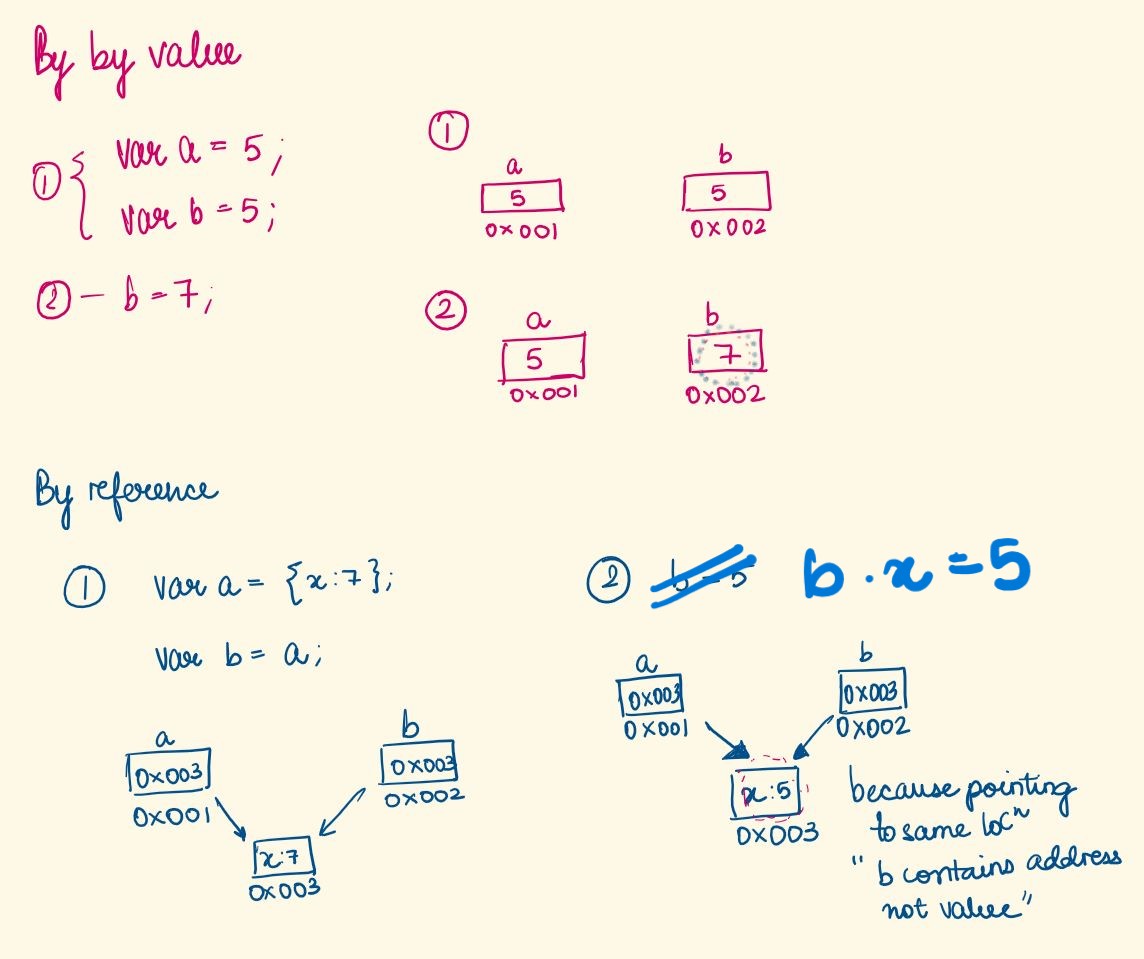 By by value
① { var a = 5;
var b = 5;
② - b = 7;
①
a b
5 5
0x001 0x002
②
a b
5 7
0x001 0x002
By reference
① var a = {x:7};
var b = a;
a b
0x003 0x003
0x001 0x002
x:7
0x003
② b = 5 b.x = 5
a b
0x003 0x003
0x001 0x002
x:5
0x003
because pointing
to same locⁿ
"b contains address
not value"